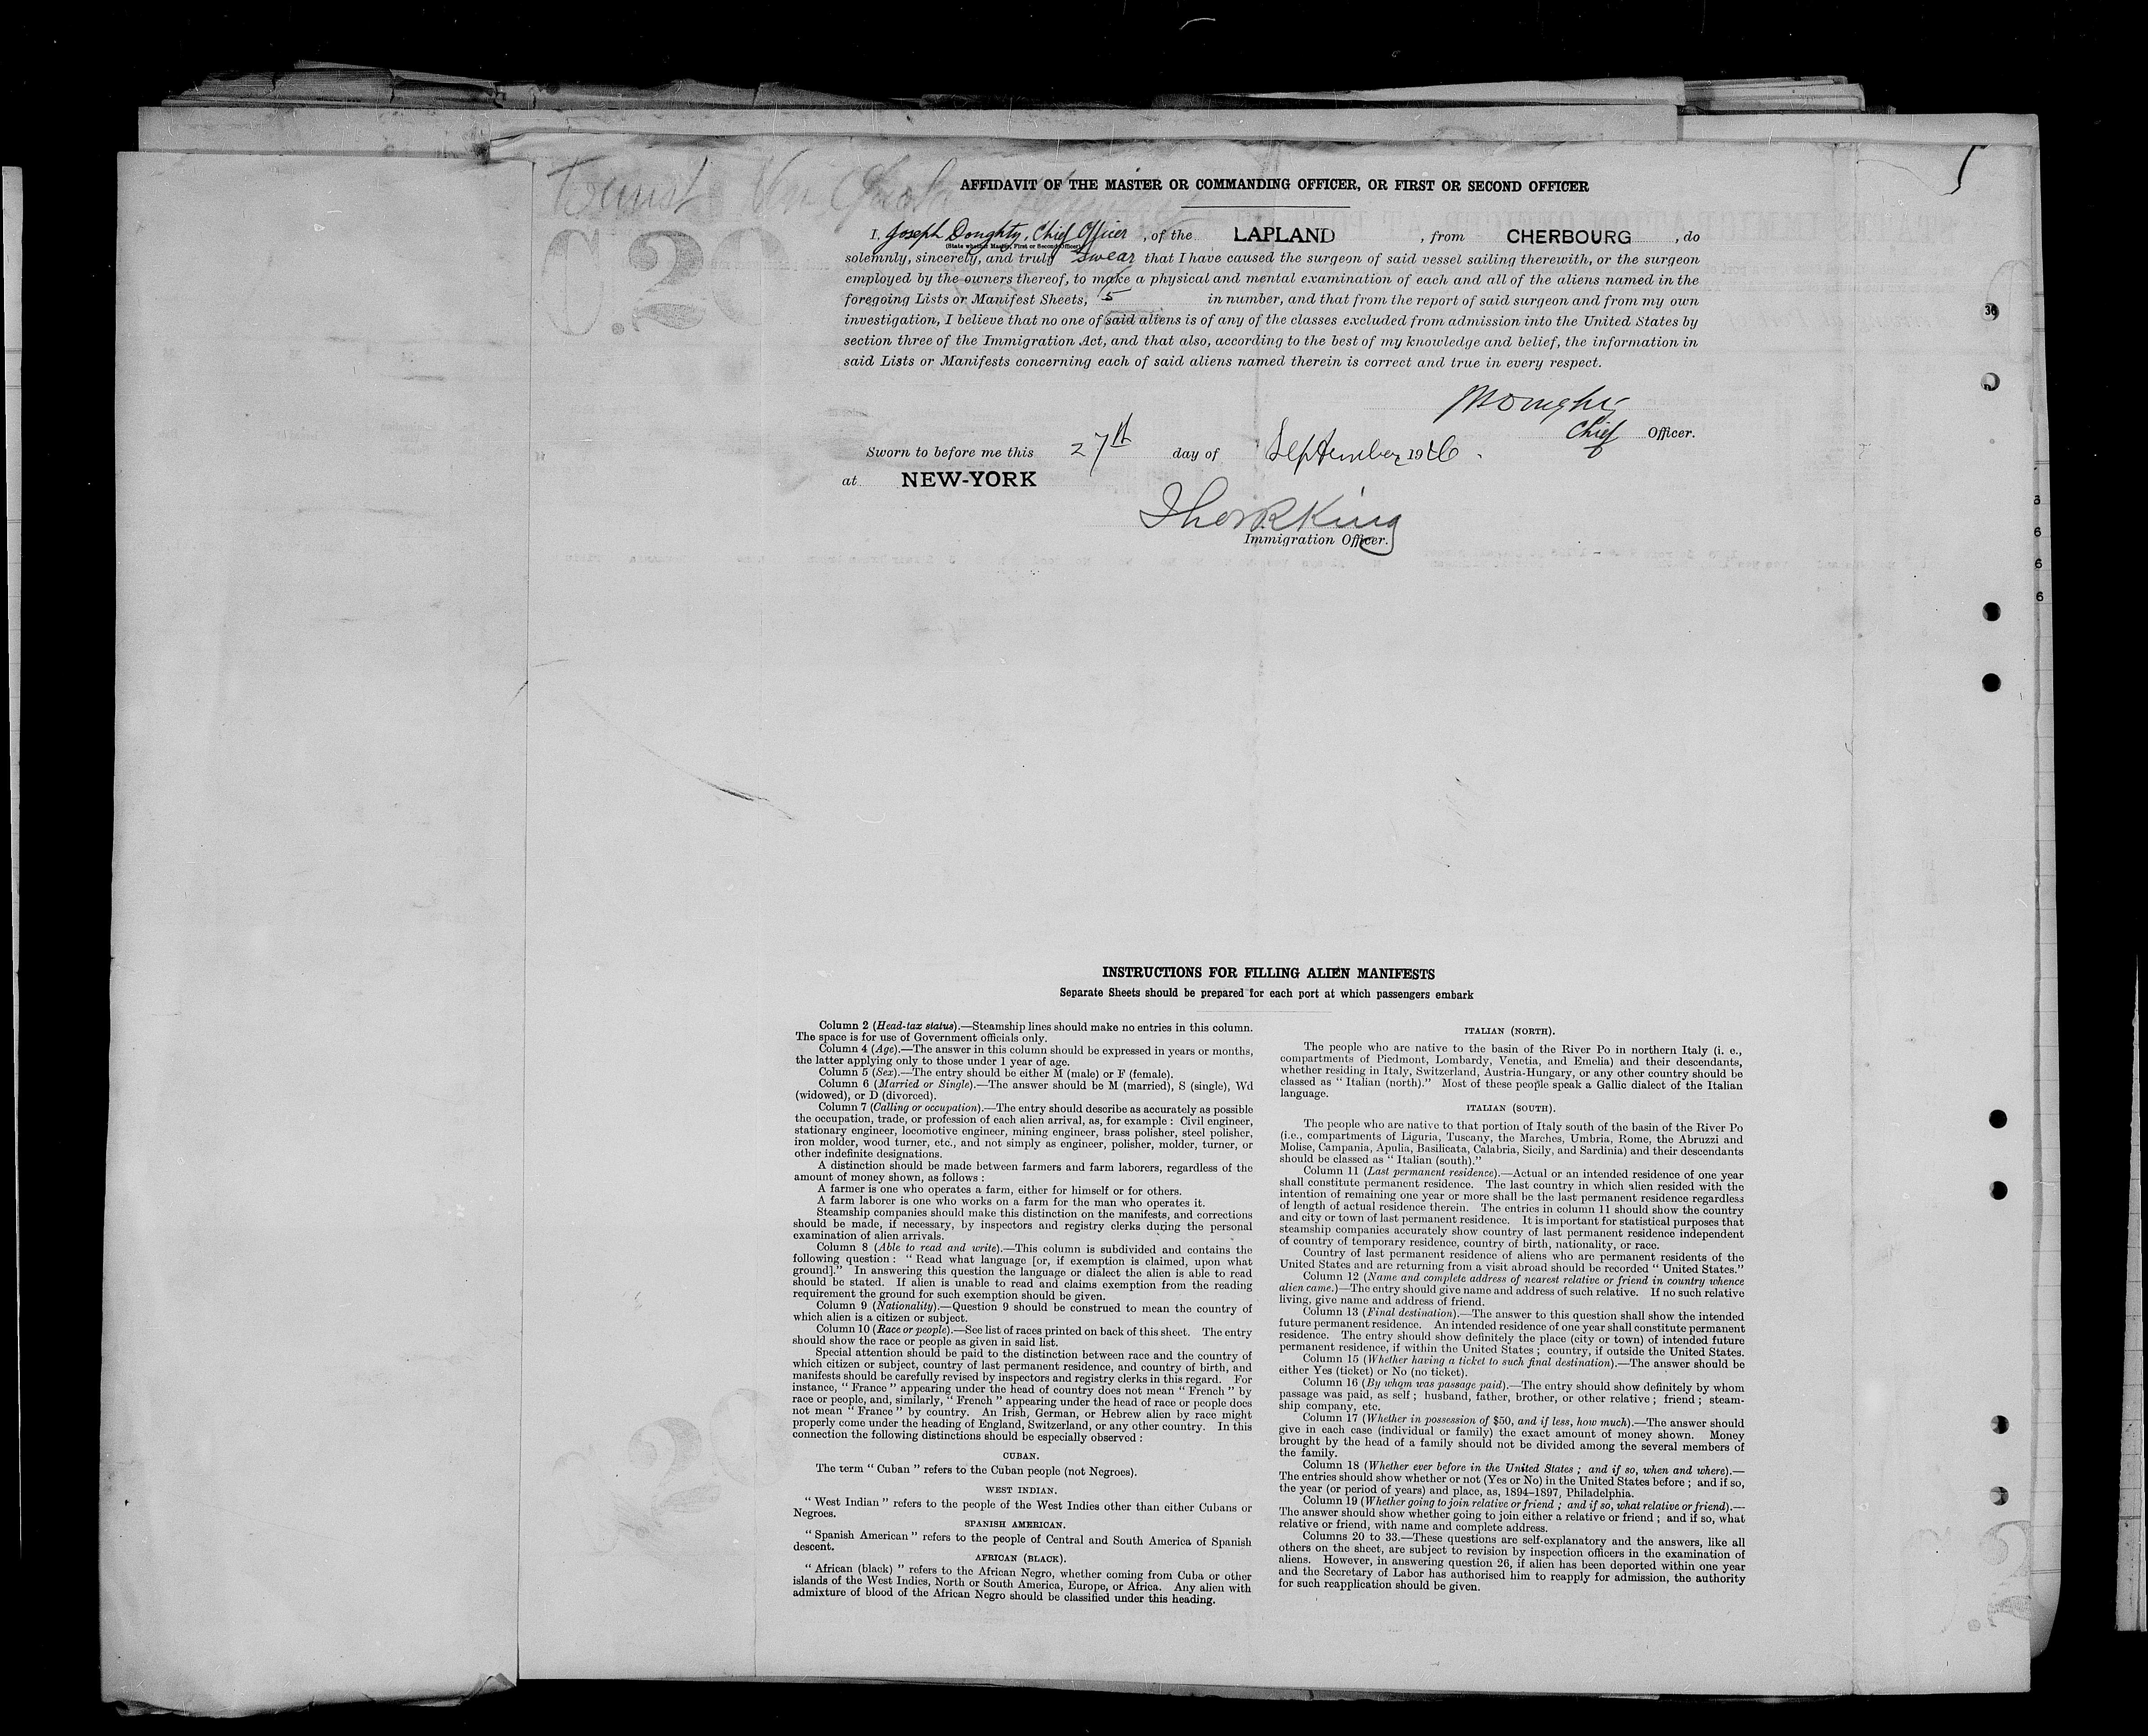 Tourist
C.20
AFFIDAVIT OF THE MASTER OR COMMANDING OFFICER, OR FIRST OR SECOND OFFICER
I, Joseph Doughty, Chief Officer , of the LAPLAND , from CHERBOURG , do
(State whether Master, First or Second Officer)
solemnly, sincerely, and truly swear that I have caused the surgeon of said vessel sailing therewith, or the surgeon
employed by the owners thereof, to make a physical and mental examination of each and all of the aliens named in the
foregoing Lists or Manifest Sheets, 5 in number, and that from the report of said surgeon and from my own
investigation, I believe that no one of said aliens is of any of the classes excluded from admission into the United States by
section three of the Immigration Act, and that also, according to the best of my knowledge and belief, the information in
said Lists or Manifests concerning each of said aliens named therein is correct and true in every respect.
Doughty
Chief Officer.
Sworn to before me this 27th day of September 1926.
at NEW-YORK
Thos R King
Immigration Officer.
INSTRUCTIONS FOR FILLING ALIEN MANIFESTS
Separate Sheets should be prepared for each port at which passengers embark
Column 2 (Head-tax status).—Steamship lines should make no entries in this column.
The space is for use of Government officials only.
Column 4 (Age).—The answer in this column should be expressed in years or months,
the latter applying only to those under 1 year of age.
Column 5 (Sex).—The entry should be either M (male) or F (female).
Column 6 (Married or Single).—The answer should be M (married), S (single), Wd
(widowed), or D (divorced).
Column 7 (Calling or occupation).—The entry should describe as accurately as possible
the occupation, trade, or profession of each alien arrival, as, for example : Civil engineer,
stationary engineer, locomotive engineer, mining engineer, brass polisher, steel polisher,
iron molder, wood turner, etc., and not simply as engineer, polisher, molder, turner, or
other indefinite designations.
A distinction should be made between farmers and farm laborers, regardless of the
amount of money shown, as follows :
A farmer is one who operates a farm, either for himself or for others.
A farm laborer is one who works on a farm for the man who operates it.
Steamship companies should make this distinction on the manifests, and corrections
should be made, if necessary, by inspectors and registry clerks during the personal
examination of alien arrivals.
Column 8 (Able to read and write).—This column is subdivided and contains the
following question : “ Read what language [or, if exemption is claimed, upon what
ground].” In answering this question the language or dialect the alien is able to read
should be stated. If alien is unable to read and claims exemption from the reading
requirement the ground for such exemption should be given.
Column 9 (Nationality).—Question 9 should be construed to mean the country of
which alien is a citizen or subject.
Column 10 (Race or people).—See list of races printed on back of this sheet. The entry
should show the race or people as given in said list.
Special attention should be paid to the distinction between race and the country of
which citizen or subject, country of last permanent residence, and country of birth, and
manifests should be carefully revised by inspectors and registry clerks in this regard. For
instance, “ France ” appearing under the head of country does not mean “ French ” by
race or people, and, similarly, “ French ” appearing under the head of race or people does
not mean “ France ” by country. An Irish, German, or Hebrew alien by race might
properly come under the heading of England, Switzerland, or any other country. In this
connection the following distinctions should be especially observed :
CUBAN.
The term “ Cuban ” refers to the Cuban people (not Negroes).
WEST INDIAN.
“ West Indian ” refers to the people of the West Indies other than either Cubans or
Negroes.
SPANISH AMERICAN.
“ Spanish American ” refers to the people of Central and South America of Spanish
descent.
AFRICAN (BLACK).
“ African (black) ” refers to the African Negro, whether coming from Cuba or other
islands of the West Indies, North or South America, Europe, or Africa. Any alien with
admixture of blood of the African Negro should be classified under this heading.
ITALIAN (NORTH).
The people who are native to the basin of the River Po in northern Italy (i. e.,
compartments of Piedmont, Lombardy, Venetia, and Emelia) and their descendants,
whether residing in Italy, Switzerland, Austria-Hungary, or any other country should be
classed as “ Italian (north).” Most of these people speak a Gallic dialect of the Italian
language.
ITALIAN (SOUTH).
The people who are native to that portion of Italy south of the basin of the River Po
(i.e., compartments of Liguria, Tuscany, the Marches, Umbria, Rome, the Abruzzi and
Molise, Campania, Apulia, Basilicata, Calabria, Sicily, and Sardinia) and their descendants
should be classed as “ Italian (south).”
Column 11 (Last permanent residence).—Actual or an intended residence of one year
shall constitute permanent residence. The last country in which alien resided with the
intention of remaining one year or more shall be the last permanent residence regardless
of length of actual residence therein. The entries in column 11 should show the country
and city or town of last permanent residence. It is important for statistical purposes that
steamship companies accurately show country of last permanent residence independent
of country of temporary residence, country of birth, nationality, or race.
Country of last permanent residence of aliens who are permanent residents of the
United States and are returning from a visit abroad should be recorded “ United States.”
Column 12 (Name and complete address of nearest relative or friend in country whence
alien came.)—The entry should give name and address of such relative. If no such relative
living, give name and address of friend.
Column 13 (Final destination).—The answer to this question shall show the intended
future permanent residence. An intended residence of one year shall constitute permanent
residence. The entry should show definitely the place (city or town) of intended future
permanent residence, if within the United States ; country, if outside the United States.
Column 15 (Whether having a ticket to such final destination).—The answer should be
either Yes (ticket) or No (no ticket).
Column 16 (By whom was passage paid).—The entry should show definitely by whom
passage was paid, as self ; husband, father, brother, or other relative ; friend ; steam-
ship company, etc.
Column 17 (Whether in possession of $50, and if less, how much).—The answer should
give in each case (individual or family) the exact amount of money shown. Money
brought by the head of a family should not be divided among the several members of
the family.
Column 18 (Whether ever before in the United States ; and if so, when and where).—
The entries should show whether or not (Yes or No) in the United States before ; and if so,
the year (or period of years) and place, as, 1894–1897, Philadelphia.
Column 19 (Whether going to join relative or friend ; and if so, what relative or friend).—
The answer should show whether going to join either a relative or friend ; and if so, what
relative or friend, with name and complete address.
Columns 20 to 33.—These questions are self-explanatory and the answers, like all
others on the sheet, are subject to revision by inspection officers in the examination of
aliens. However, in answering question 26, if alien has been deported within one year
and the Secretary of Labor has authorised him to reapply for admission, the authority
for such reapplication should be given.